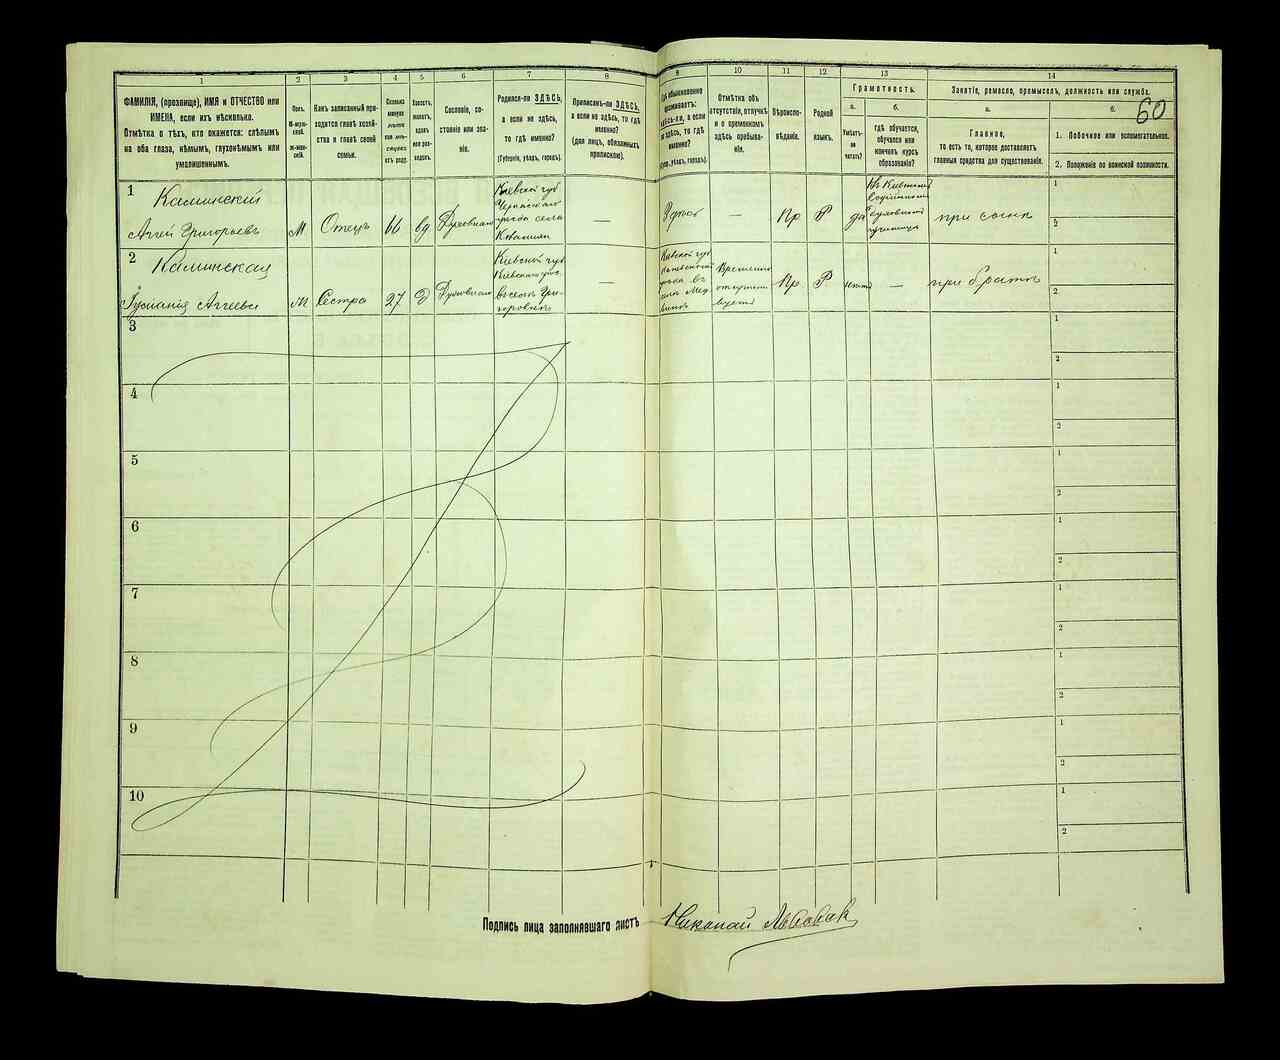 1
2
3
4
5
6
7
8
9
10
11
12
13
14
ФАМИЛІЯ, (прозвище), ИМЯ и ОТЧЕСТВО или
ИМЕНА, если ихъ нѣсколько.
Отмѣтка о тѣхъ, кто окажется: слѣпымъ
на оба глаза, нѣмымъ, глухонѣмымъ или
умалишеннымъ.
Полъ.
М-муж-
ской.
Ж-жен-
скій.
Какъ записанный при-
ходится главѣ хозяй-
ства и главѣ своей
семьи.
Сколько
минуло
лѣтъ
или мѣ-
сяцевъ
отъ роду.
Холостъ,
женатъ,
вдовъ
или раз-
веденъ.
Сословіе, со-
стояніе или зва-
ніе.
Родился-ли ЗДѢСЬ,
а если не здѣсь,
то гдѣ именно?
(Губернія, уѣздъ, городъ).
Приписанъ-ли ЗДѢСЬ,
а если не здѣсь, то гдѣ
именно?
(для лицъ, обязанныхъ
припискою).
Гдѣ обыкновенно
проживаетъ:
здѣсь-ли, а если
не здѣсь, то гдѣ
именно?
(Губ., уѣздъ, городъ).
Отмѣтка объ
отсутствіи, отлучкѣ
и о временномъ
здѣсь пребыва-
ніи.
Вѣроиспо-
вѣданіе.
Родной
языкъ.
Грамотность.
а.
Умѣетъ-
ли
читать?
б.
гдѣ обучается,
обучался или
кончилъ курсъ
образованія?
Занятіе, ремесло, промыселъ, должность или служба.
60
а.
Главное,
то есть то, которое доставляетъ
главныя средства для существованія.
б.
1. Побочное или вспомогательное.
2. Положеніе по воинской повинности.
1
Каминскій
Аггей Григорьевъ
М
Отецъ
66
вд
Духовнаго
Кіевской губ
уѣзда села
—
Здѣсь
—
Пр
Р
да
Въ Кіевскомъ
духовномъ
училищѣ
при сынѣ
1
2
2
Каминская
Аггеева
Сестра
27
Д
Духовнаго
Кіевской губ
Кіевскаго уѣз.
въ селѣ Гри-
горовкѣ
—
Кіевской губ
уѣзда въ
Временно
отсутст
вуетъ
Пр
Р
—
при братѣ
1
2
3
1
2
4
1
2
5
1
2
6
1
2
7
1
2
8
1
2
9
1
2
10
1
2
Подпись лица заполнявшаго листъ